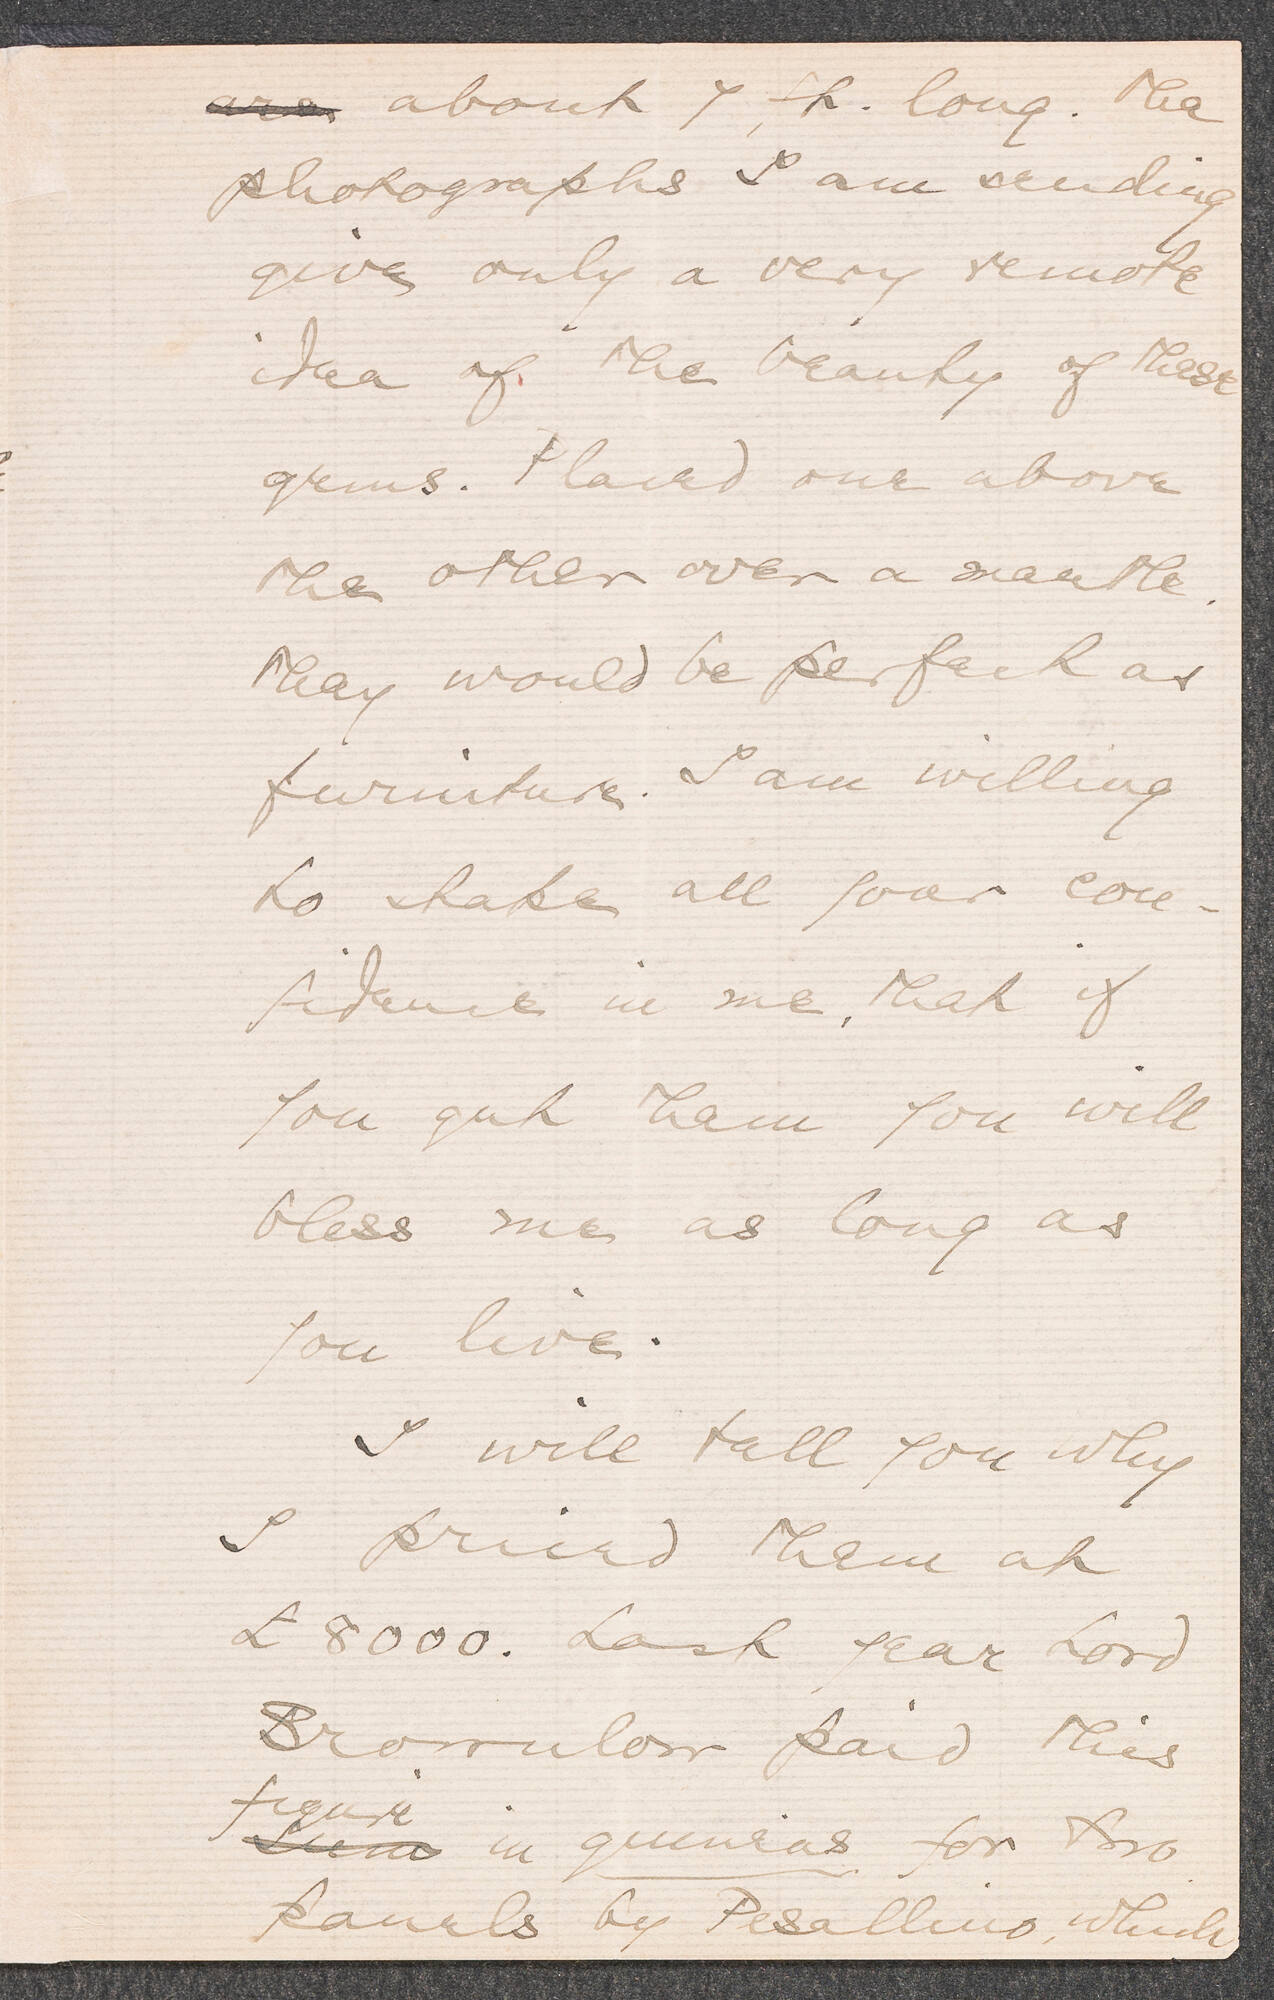 are about 7 ft. long. The
photographs I am sending
give only a very remote
idea of the beauty of these
gems. Placed one above
the other over a mantle,
they would be perfect as
furniture. I am willing
to stake all your con-
fidence in me, that if
you get them you will
bless me as long as
you live.
I will tell you why
I priced them at
£8000. Last year Lord
Brownlow paid this
figure
sum in guineas for two
panels by Pesellino, which